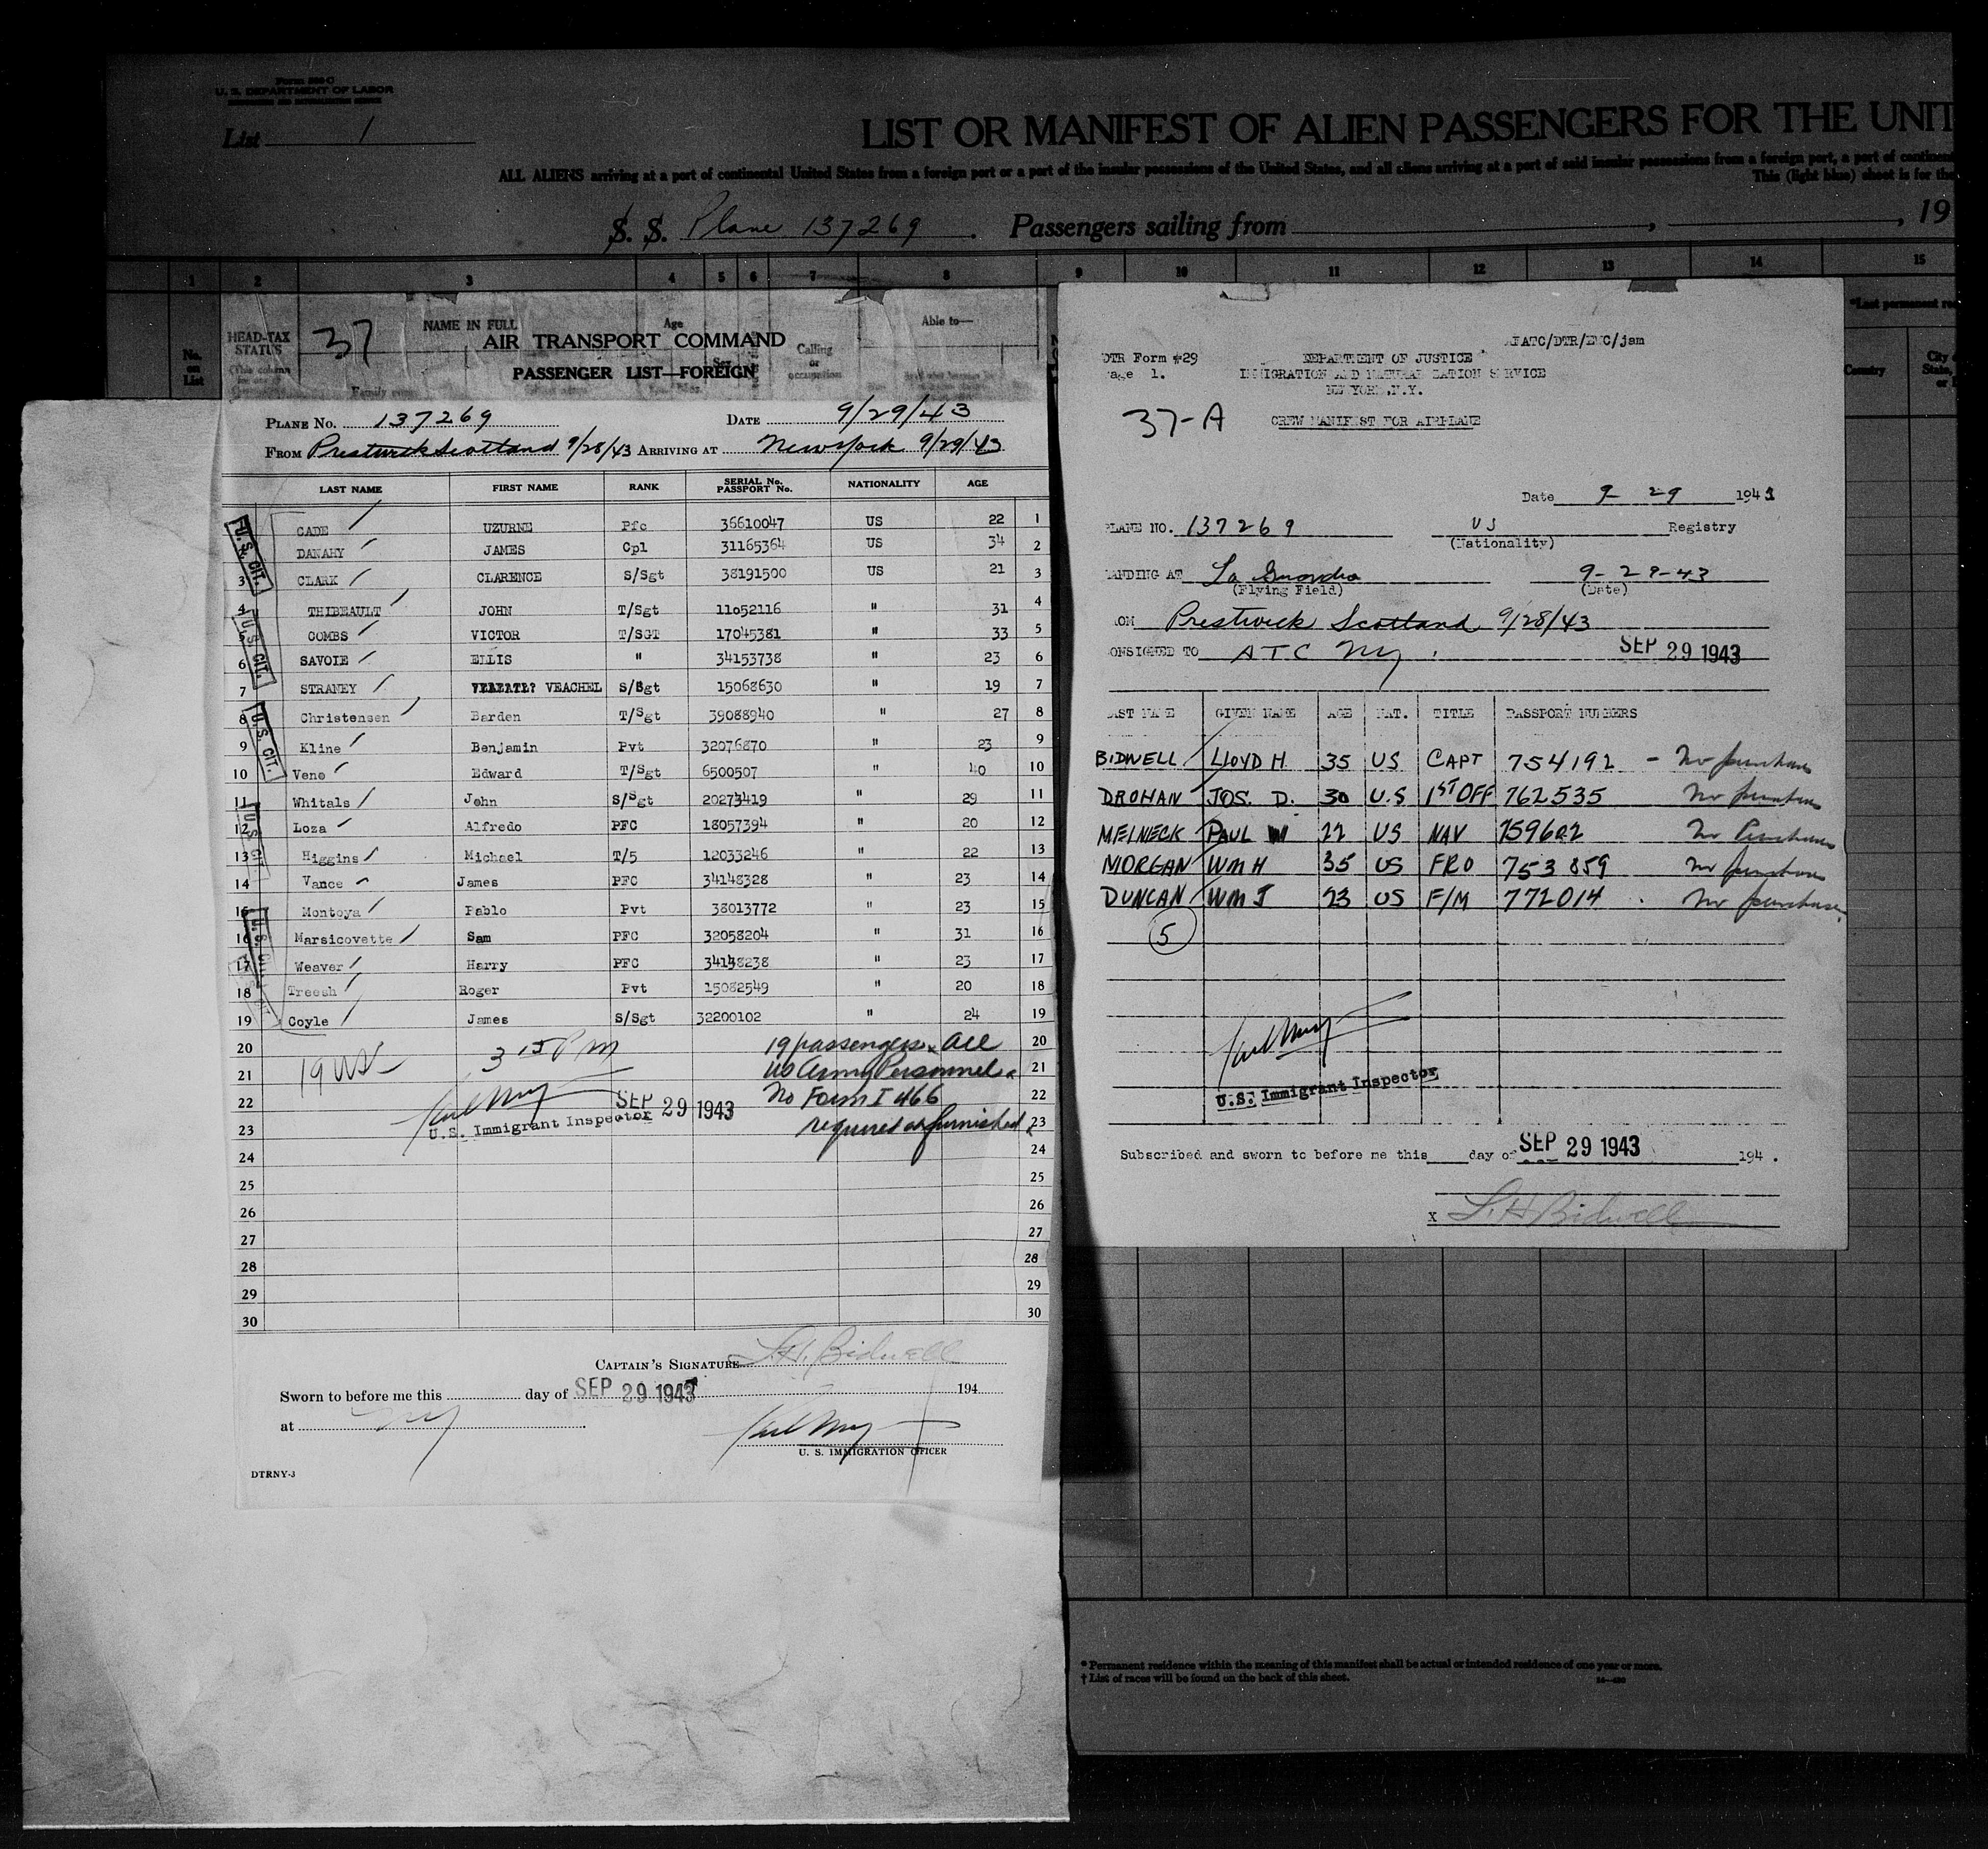 Form 500 C
U. S. DEPARTMENT OF LABOR
IMMIGRATION AND NATURALIZATION SERVICE
List 1
LIST OR MANIFEST OF ALIEN PASSENGERS FOR THE UNIT
ALL ALIENS arriving at a port of continental United States from a foreign port or a port of the insular possessions of the United States, and all aliens arriving at a port of said insular possessions from a foreign port, a port of continent
This (light blue) sheet is for the
S. S. Plane 137269 . Passengers sailing from , , 19
1 2 3 4 5 6 7 8 9 10 11 12 13 14 15
No. on List
HEAD-TAX STATUS
(This column
NAME IN FULL
Family
Age
Sex
Calling or occupation
Able to—
*Last permanent re
Country
City
State,
37
AIR TRANSPORT COMMAND
PASSENGER LIST—FOREIGN
PLANE NO. 137269 DATE 9/29/43
FROM Prestwick Scotland 9/28/43 ARRIVING AT New York 9/29/43
LAST NAME FIRST NAME RANK SERIAL No. PASSPORT No. NATIONALITY AGE
CADE UZURNE Pfc 36610047 US 22 1
DANAHY JAMES Cpl 31165364 US 34 2
3 CLARK CLARENCE S/Sgt 38191500 US 21 3
4 THIBEAULT JOHN T/Sgt 11052116 " 31 4
5 COMBS VICTOR T/SGT 17045381 " 33 5
6 SAVOIE ELLIS " 34153738 " 23 6
7 STRANEY VEACHEL S/Sgt 15068630 " 19 7
8 Christensen Barden T/Sgt 39088940 " 27 8
9 Kline Benjamin Pvt 32076870 " 23 9
10 Veno Edward T/Sgt 6500507 " 40 10
11 Whitals John S/Sgt 20273419 " 29 11
12 Loza Alfredo PFC 18057394 " 20 12
13 Higgins Michael T/5 12033246 " 22 13
14 Vance James PFC 34148328 " 23 14
15 Montoya Pablo Pvt 38013772 " 23 15
16 Marsicovette Sam PFC 32058204 " 31 16
17 Weaver Harry PFC 34148238 " 23 17
18 Treesh Roger Pvt 15082549 " 20 18
19 Coyle James S/Sgt 32200102 " 24 19
U.S. CIT.
U.S. CIT.
U.S. CIT.
20 19 passengers. All 20
19 US 3 15 PM
21 US Army Personnel. 21
22 SEP 29 1943 No Form I 466 22
23 U.S. Immigrant Inspector required or furnished 23
24 24
25 25
26 26
27 27
28 28
29 29
30 30
CAPTAIN'S SIGNATURE L.H. Bidwell
Sworn to before me this day of SEP 29 1943 194
at NY
U. S. IMMIGRATION OFFICER
DTRNY-3
ATC/DTR/ENC/jam
DTR Form #29
Page 1.
DEPARTMENT OF JUSTICE
IMMIGRATION AND NATURALIZATION SERVICE
NEW YORK, N.Y.
37-A
CREW MANIFEST FOR AIRPLANE
Date 9- 29 1943
PLANE NO. 137269 US Registry
(Nationality)
LANDING AT La Guardia 9-29-43
(Flying Field) (Date)
FROM Prestwick Scotland 9/28/43
CONSIGNED TO ATC NY. SEP 29 1943
LAST NAME GIVEN NAME AGE NAT. TITLE PASSPORT NUMBERS
BIDWELL LLOYD H 35 US CAPT 754192 - No purchases
DROHAN JOS. D. 30 U.S 1ST OFF 762535 No purchases
MELNECK PAUL W 22 US NAV 759622 No Purchases
MORGAN WM H 35 US FRO 753859 No purchases
DUNCAN WM J 23 US F/M 772014 . No purchases
5
U.S. Immigrant Inspector
Subscribed and sworn to before me this day of SEP 29 1943 194 .
X L.H. Bidwell
* Permanent residence within the meaning of this manifest shall be actual or intended residence of one year or more.
† List of races will be found on the back of this sheet.